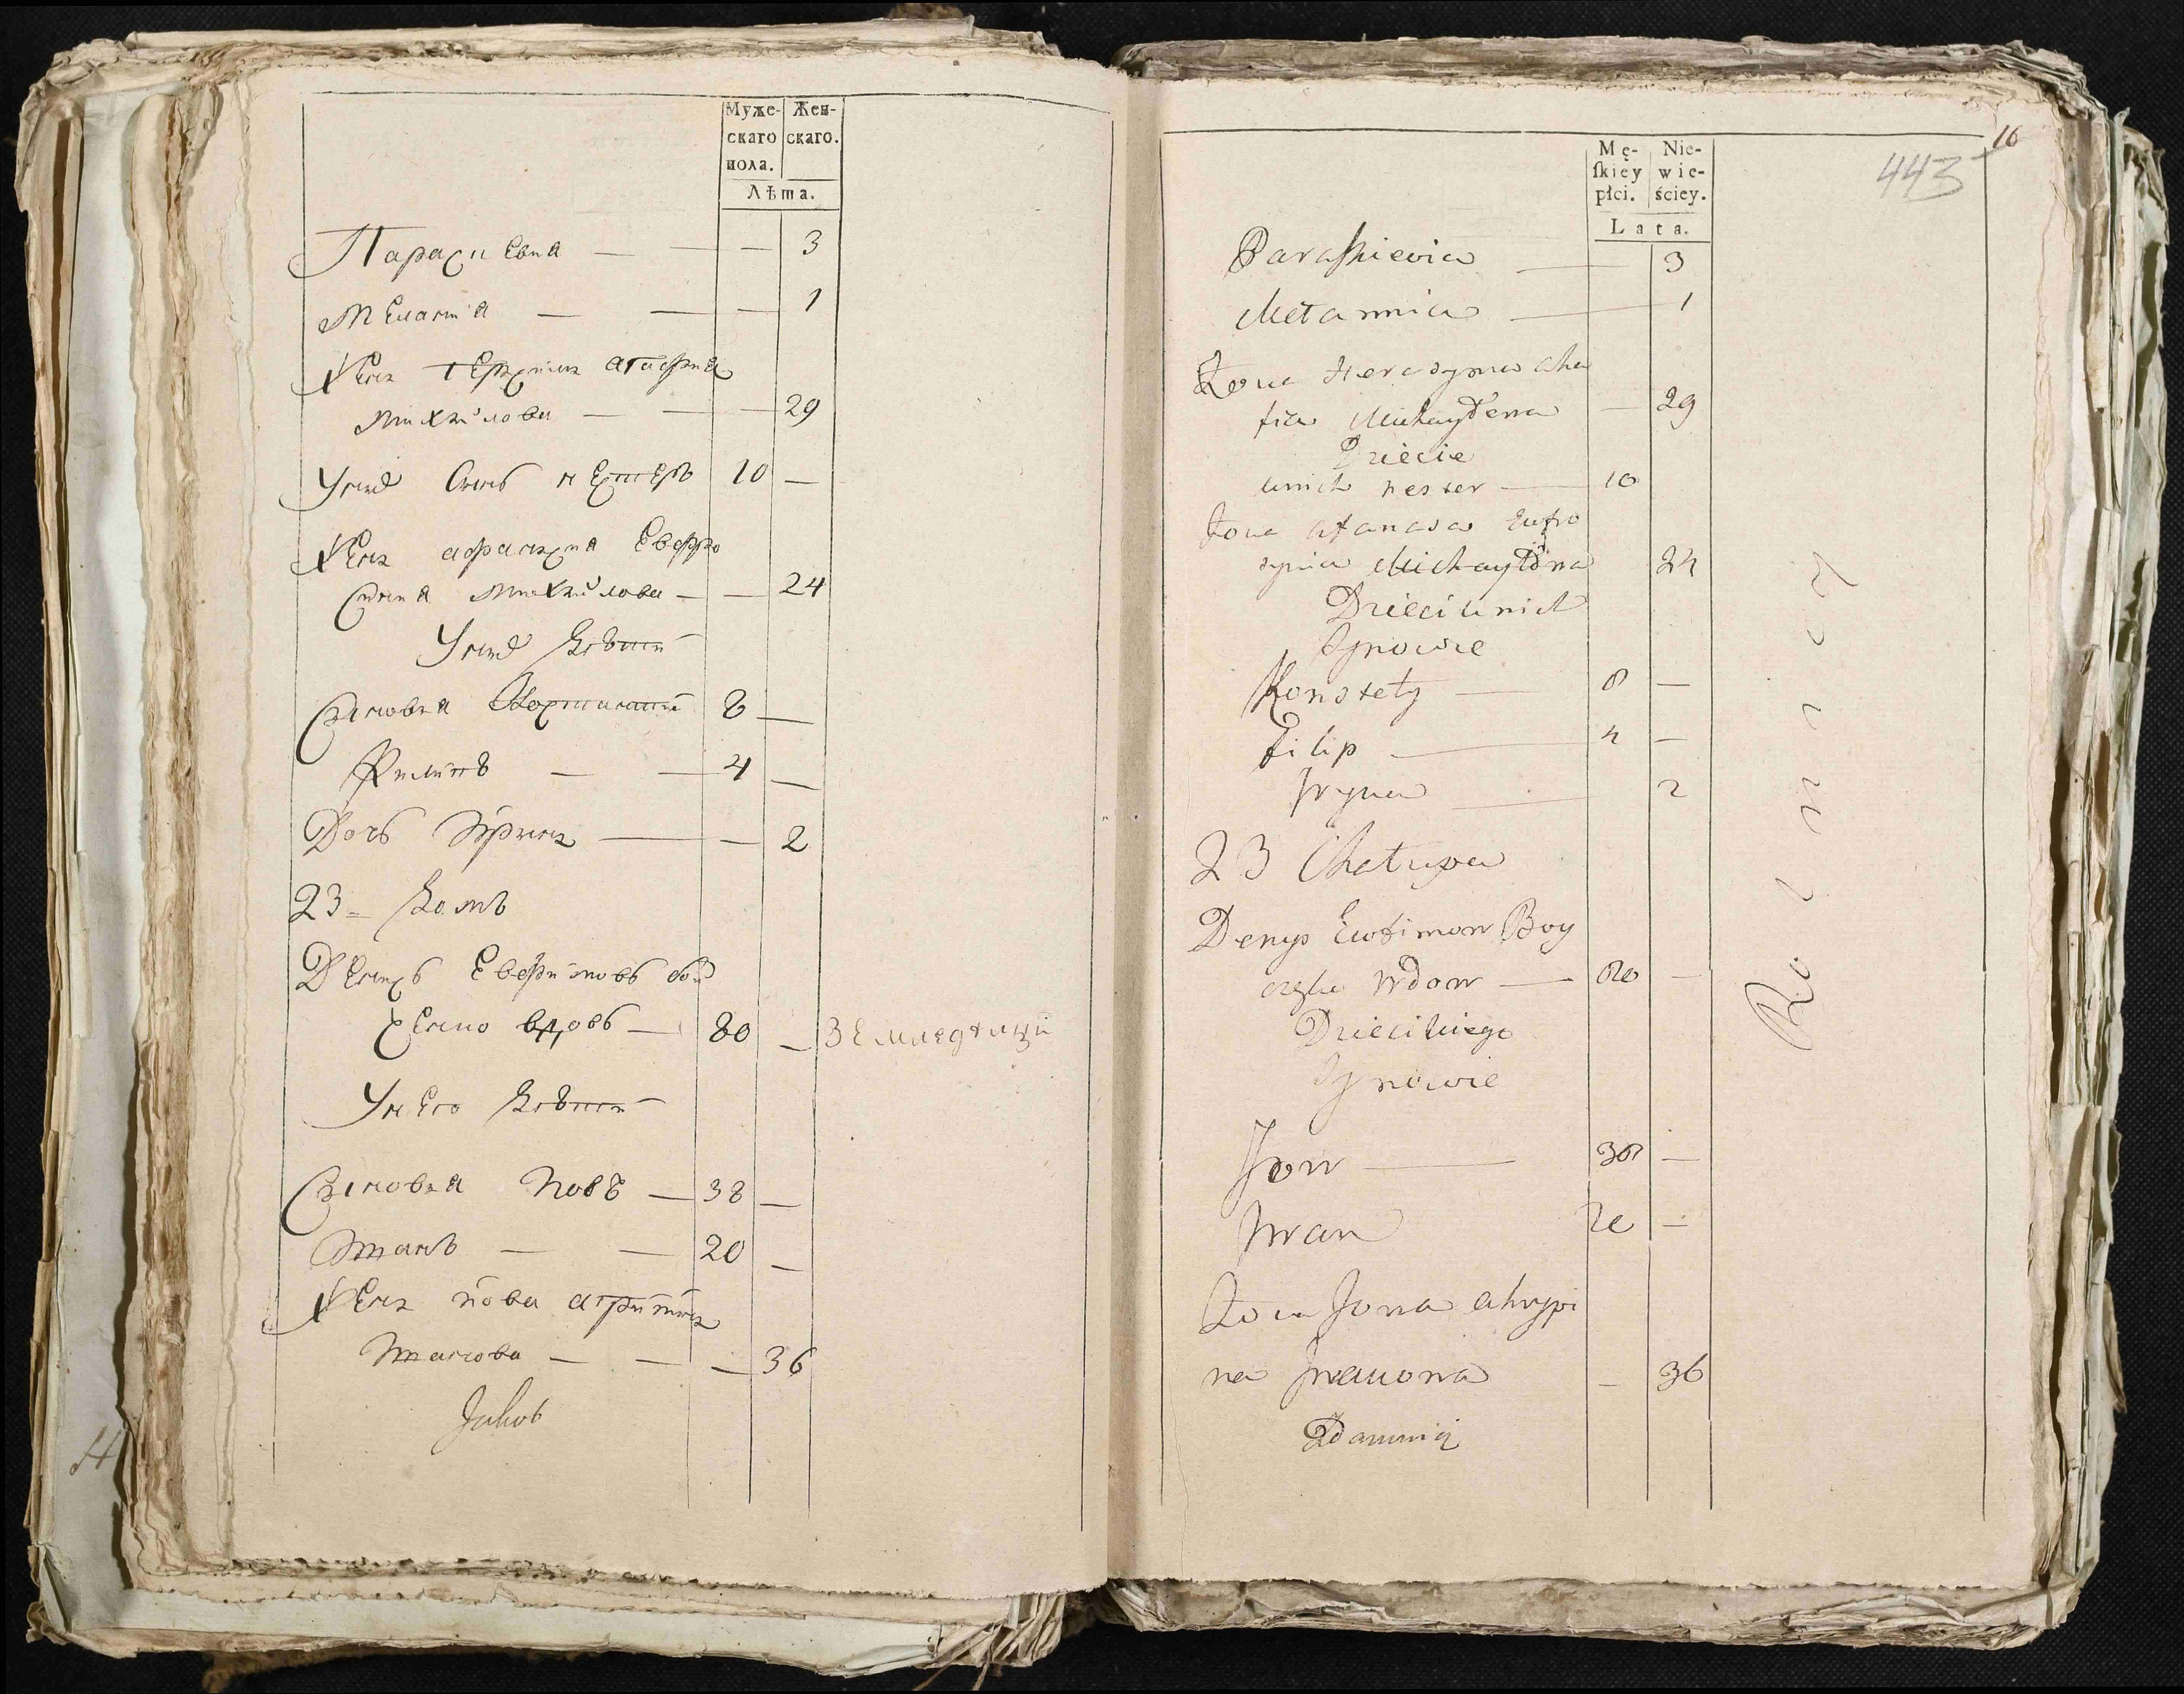 Муже-
скаго
пола.
Жен-
скаго.
Лѣта.
Параскевиа — — — 3
Мелания — — — 1
Жена Герасима Агафиа
Михайлова — — — 29
У нихъ Сынъ Нестеръ 10 —
Жена Афанасиа Евфро
синиа Михайлова — — 24
У нихъ Дѣти
Сыновья Костантий 8 —
Филипъ — — 4 —
Дочь Ирина — — 2
23 = Домъ
Денисъ Евфимовъ бой
ченко вдовъ — 80 — Земледѣлцы
У него Дѣти
Сыновья Иовъ — 38 —
Иванъ — — 20 —
Жена Иова Агрипина
Иванова — — — 36
Jakob
16
443
Mę-
ſkiey
płci.
Nie-
wie-
ściey.
Lata.
Paraſkiewia — 3
Mełannia — 1
Zona Herasyma Aha
fia Michayłowa — 29
Dziecie
u nich Nester — 10
Zona Afanasa Eufro
synia Michayłowna 24
Dzieci u nich
Synowie
Konstety — 8 —
Filip — 4 —
Iryna — 2
23 Chałupa
Denys Ewfimow Boy
czenko Wdow — 80 —
Dzieci u niego
Synowie
Jow — 38 —
Iwan 20 —
Zona Jowa Ahrypi
na Iwanowa — 36
Rolnicy